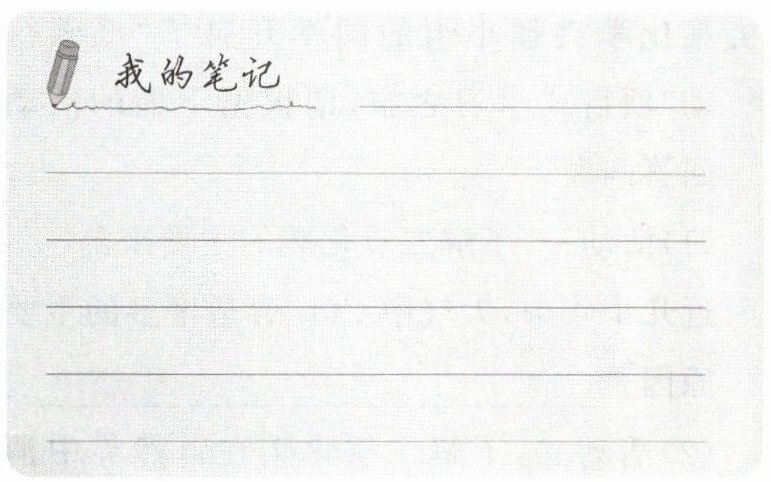 我的笔记